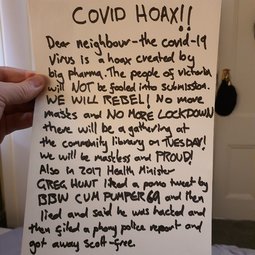 COVID HOAX!!
Dear neighbour - the covid-19
Virus is a hoax created by
big pharma. The people of victoria
will NOT be fooled into submission.
WE WILL REBEL! No more
masks and NO MORE LOCKDOWN
there will be a gathering at
the community library on TUESDAY!
We will be maskless and PROUD!
Also in 2017 Health Minister
GREG HUNT liked a porno tweet by
BBW CUM PUMPER 69 and then
lied and said he was hacked and
then filed a phony police report and
got away scott-free.